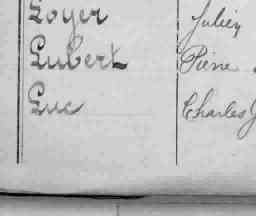 Loyer Julien
Lubert Pierre
Luc Charles J